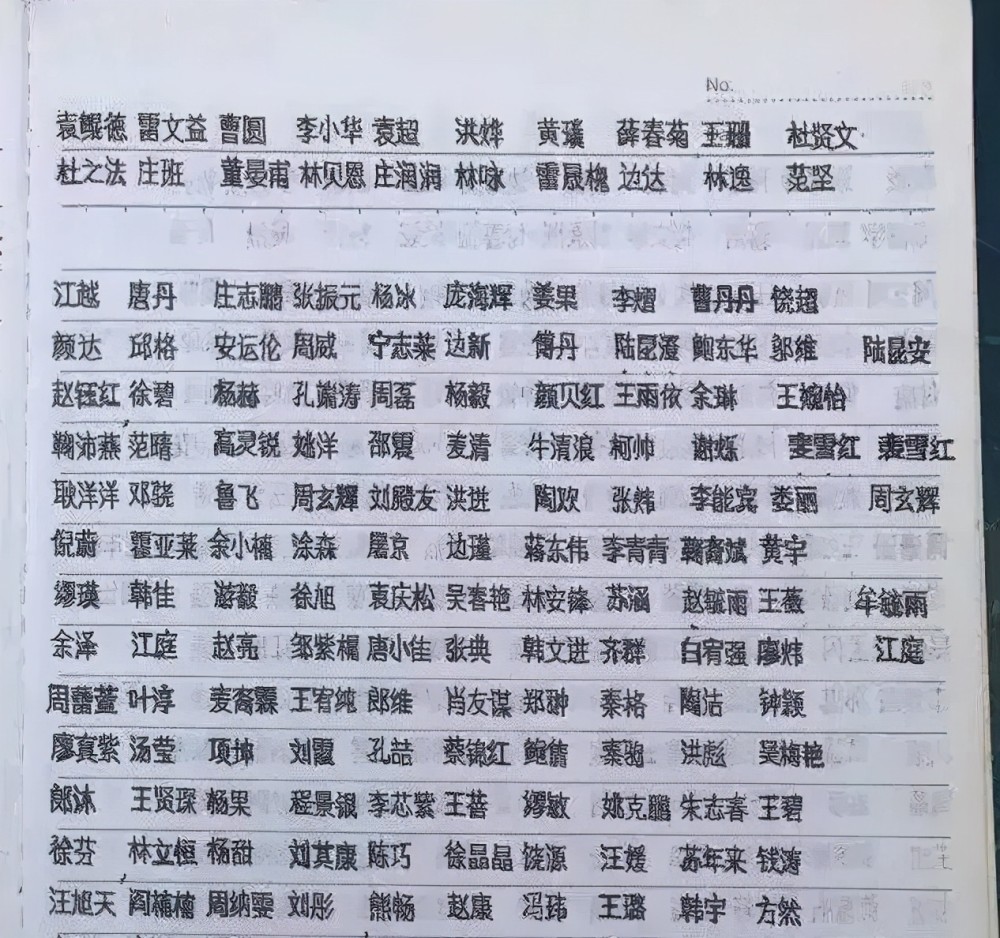 No:
袁鲲德 雷文益 曹圆 李小华 袁超 洪烨 黄瑧 薛春菊 王珊 杜贤文
杜之法 庄班 董晏甫 林贝恩 庄润润 林咏 雷晟槐 边达 林逸 范坚
江越 唐丹 庄志鹏 张振元 杨冰 庞海辉 姜果 李熠 曹丹丹 饶超
颜达 邱格 安运伦 周威 宁志莱 边新 傅丹 陆昆漫 鲍东华 邬维 陆昆安
赵钰红 徐碧 杨赫 周磊 杨毅 颜贝红 王雨依 余琳 王婉怡
鞠沛燕 范晴 高灵锐 姚洋 邵震 麦清 牛清浪 柯帅 谢烁 娄雪红 裴雪红
耿洋洋 邓骁 鲁飞 周玄辉 刘殿友 洪进 陶欢 张炜 李能宾 娄丽 周玄辉
倪蔚 余小橘 涂森 屠京 边瑾 蒋东伟 李青青 鞠裔斌 黄宇
缪瑛 韩佳 游毅 徐旭 袁庆松 吴春艳 林安锋 苏涵 赵毓雨 王薇 牟毓雨
余泽 江庭 赵亮 邹紫榻 唐小佳 张典 韩文进 齐群 白宥强 廖炜 江庭
叶淳 麦裔霖 王宥纯 郎维 肖友谋 郑翀 秦格 陶洁 钟颖
廖真紫 汤莹 项坤 刘霞 孔喆 蔡锦红 鲍倩 秦驰 洪彪 吴梅艳
郎沐 王贤琛 杨果 程景淑 李芯紫 王蓉 缪敏 姚克鹏 朱志春 王碧
徐芬 林立恒 杨甜 刘其康 陈巧 徐晶晶 饶源 汪媛 苏年来 钱涛
汪旭天 阎楠楠 周纳雯 刘彤 熊畅 赵康 冯玮 王璐 韩宇 方然